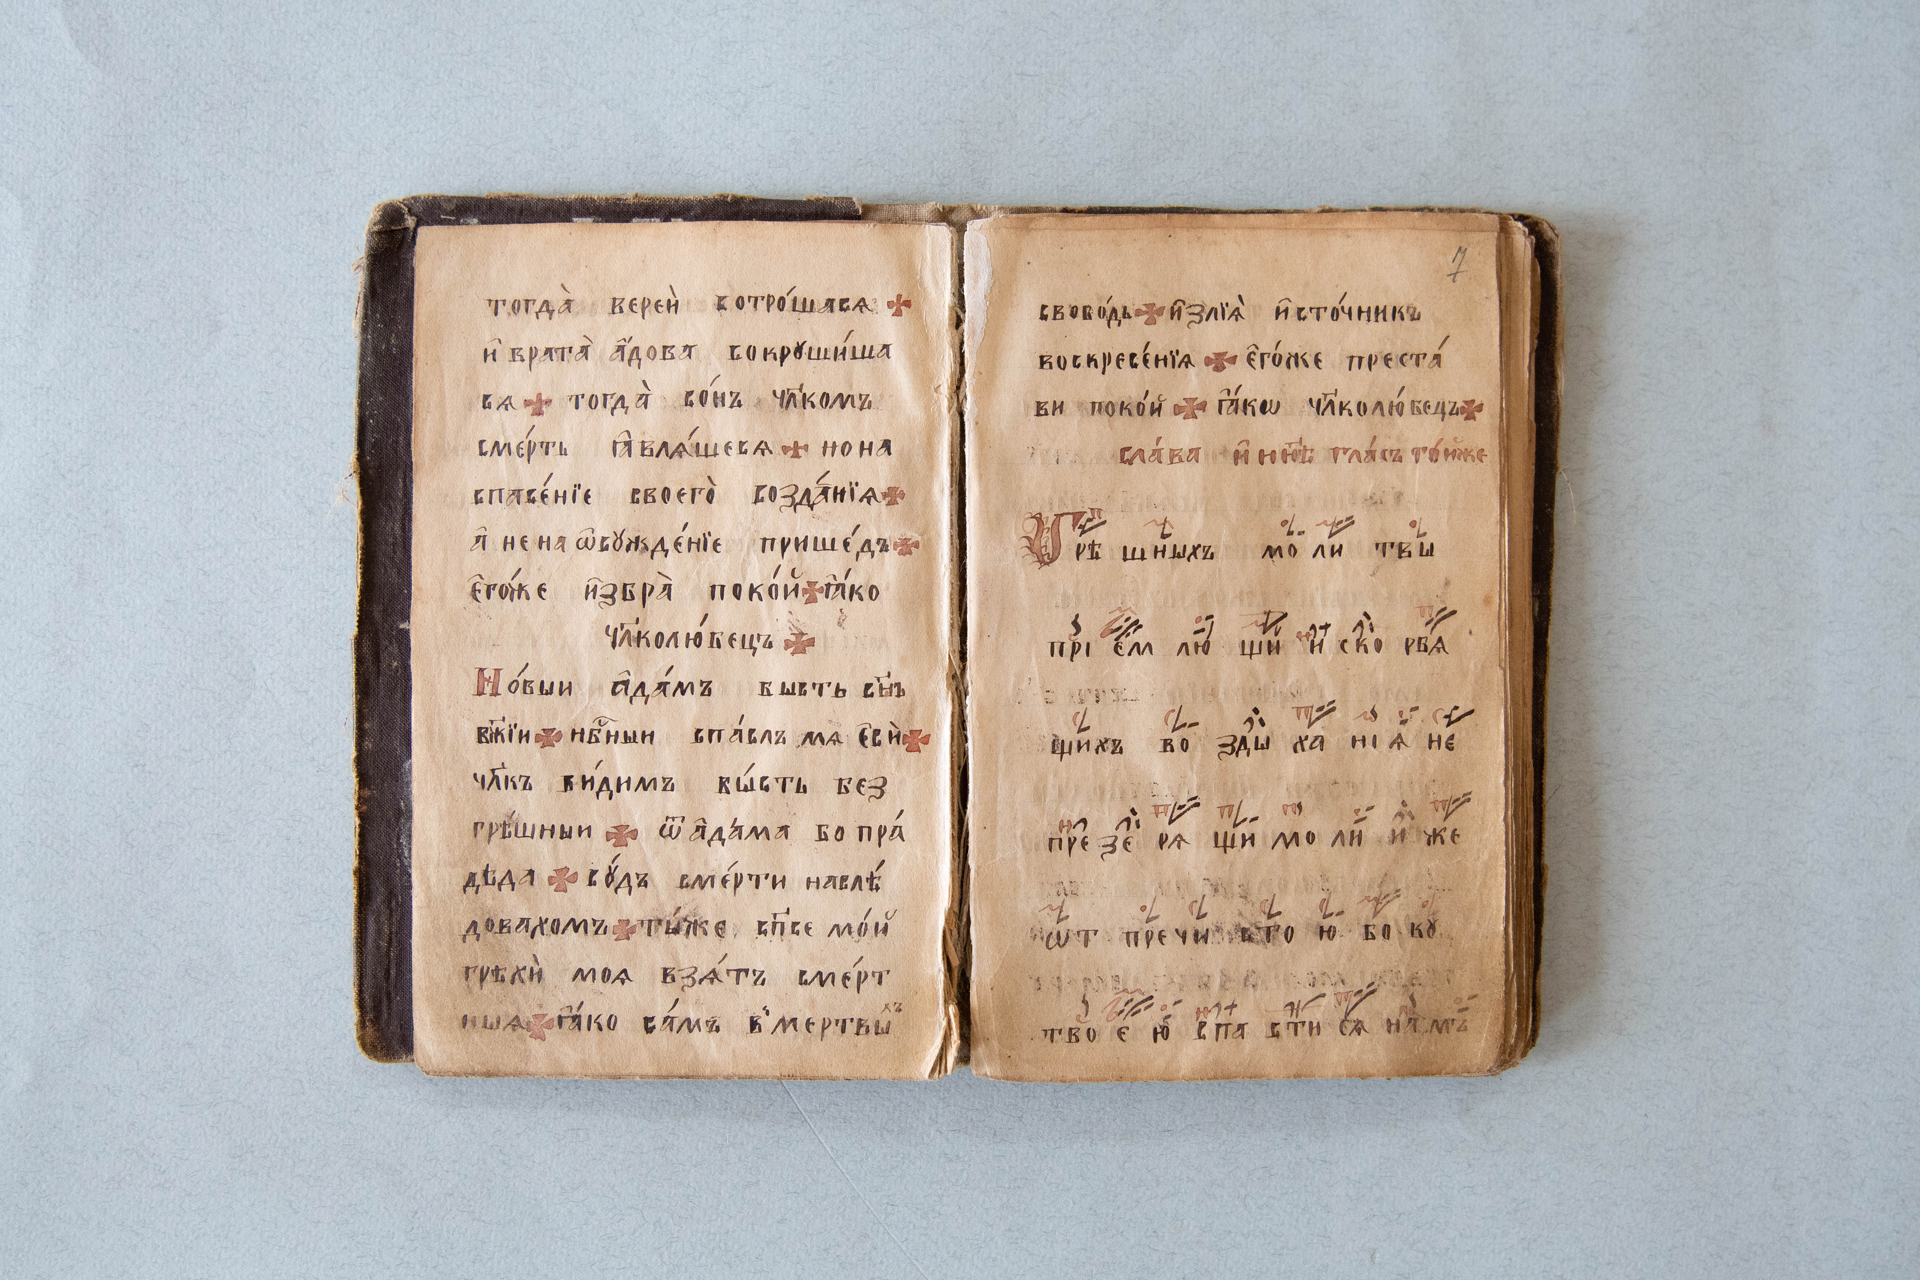 тогда̀ верей̀ сотро́шася ✠
и҆ врата̀ а҆́дова сокрꙋши́ша
ся ✠ тогда̀ со́нъ чл҃комъ
сме́рть ꙗ҆вля́шеся ✠ но на
спасе́нїе своего̀ созда́нїя ✠
а҆ не на ѿсꙋжде́нїе прише́дъ ✠
є҆го́же и҆збра̀ поко́й ✠ ꙗ҆́ко
чл҃колю́бецъ ✠
Но́выи а҆да́мъ бысть сн҃ъ
бж҃їи ✠ нбⷭ҇ныи спа́слъ мя є҆сѝ ✠
чл҃къ ви́димъ бы́сть без
грѣ́шныи ✠ ѿ а҆да́ма бо пра́
дѣда ✠ сꙋ́дъ сме́рти наслѣ́
довахомъ ✠ ты́же сп҃се мо́й
грѣхѝ моя взя́тъ сме́рт
ныя ✠ ꙗ҆́ко са́мъ в̾мертвыхъ
7
свобо́дь ✠ и҆злїя̀ и҆сто́чникъ
воскресе́нїя ✠ є҆го́же преста́
ви поко́й ✠ ꙗ҆́кѡ чл҃колю́бецъ ✠
сла́ва и҆ нн҃ѣ гла́съ то́йже
Грѣ шныхъ мо ли твы
прї ем лю щи и ско рбя
щихъ во зды ха нї я не
пре зе ря щи мо ли и же
ѿт пречи сто ю бо кꙋ
тво е ю спа сти ся намъ